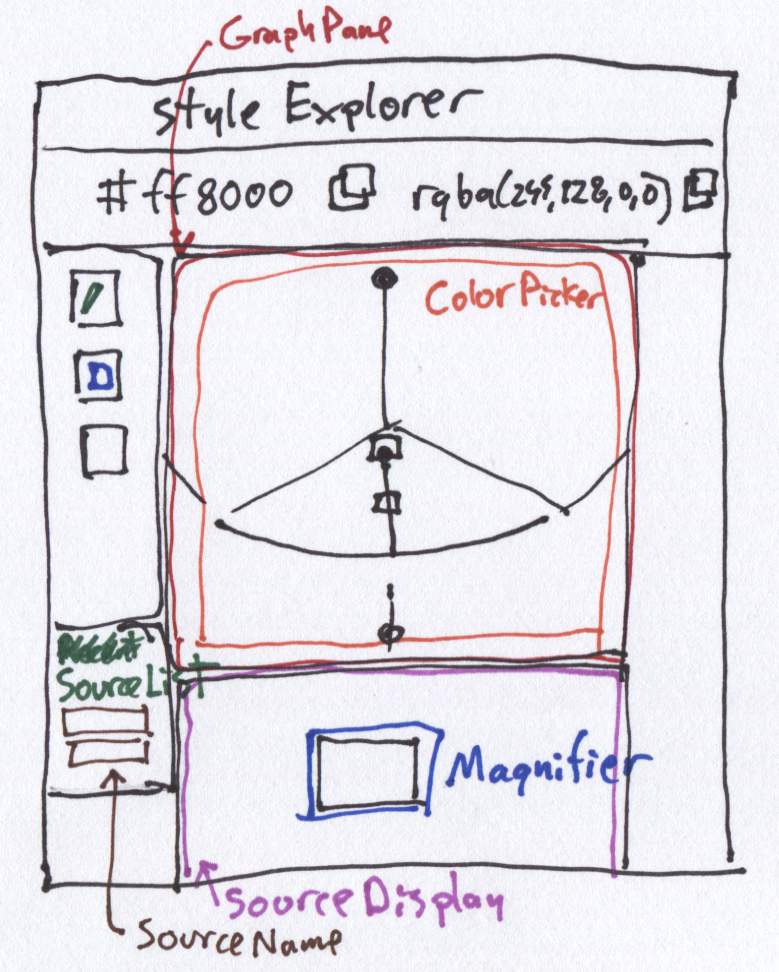 GraphPane
Style Explorer
#ff8000
rgba(245,128,0,0)
ColorPicker
D
SourceList
Magnifier
SourceDisplay
SourceName